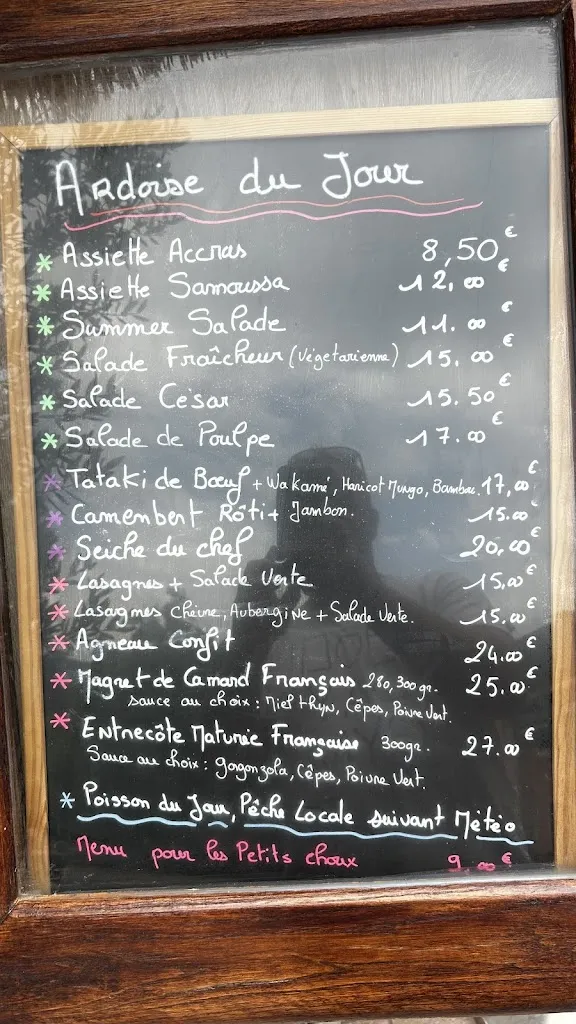 Ardoise du Jour
* Assiette Accras 8,50€
* Assiette Samoussa 12,00€
* Summer Salade 11.00€
* Salade Fraîcheur (Végétarienne) 15.00€
* Salade César 15.50€
* Salade de Poulpe 17.00€
* Tataki de Bœuf + Wakamé, Haricot Mungo, Bambou. 17,00€
* Camembert Rôti + Jambon. 15.00€
* Seiche du chef 20,00€
* Lasagnes + Salade Verte 15,00€
* Lasagnes chèvre, Aubergine + Salade Verte. 15.00€
* Agneau Confit 24.00€
* Magret de Canard Français 280,300gr. 25.00€
sauce au choix : Miel thym, Cêpes, Poivre Vert.
* Entrecôte Maturée Française 300gr. 27.00€
Sauce au choix : gorgonzola, Cêpes, Poivre Vert.
* Poisson du Jour, Pêche Locale suivant Météo
Menu pour les Petits choux 9,00€